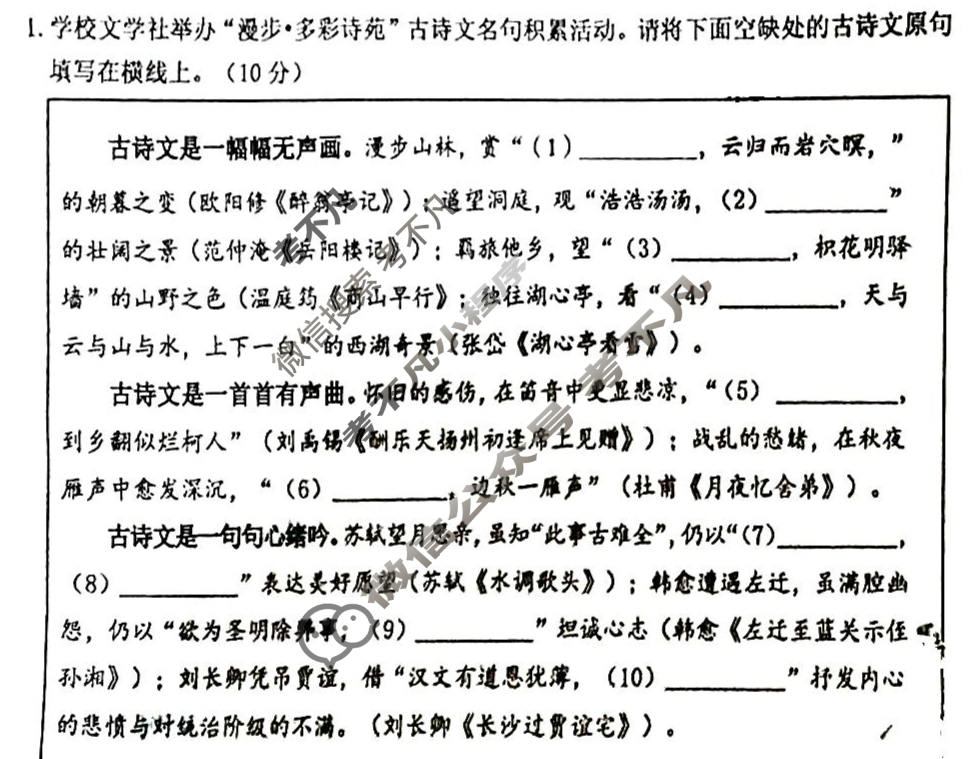 1. 学校文学社举办“漫步·多彩诗苑”古诗文名句积累活动。请将下面空缺处的古诗文原句
填写在横线上。（10分）
古诗文是一幅幅无声画。漫步山林，赏“（1）__________，云归而岩穴暝，”
的朝暮之变（欧阳修《醉翁亭记》）；遥望洞庭，观“浩浩汤汤，（2）__________”
的壮阔之景（范仲淹《岳阳楼记》）；羁旅他乡，望“（3）__________，枳花明驿
墙”的山野之色（温庭筠《商山早行》；独往湖心亭，看“（4）__________，天与
云与山与水，上下一白”的西湖奇景（张岱《湖心亭看雪》）。
古诗文是一首首有声曲。怀旧的感伤，在笛音中更显悲凉，“（5）__________，
到乡翻似烂柯人”（刘禹锡《酬乐天扬州初逢席上见赠》）；战乱的愁绪，在秋夜
雁声中愈发深沉，“（6）__________，边秋一雁声”（杜甫《月夜忆舍弟》）。
古诗文是一句句心绪吟。苏轼望月思亲，虽知“此事古难全”，仍以“（7）__________，
（8）__________”表达美好愿望（苏轼《水调歌头》）；韩愈遭遇左迁，虽满腔幽
怨，仍以“欲为圣明除弊事，（9）__________”坦诚心志（韩愈《左迁至蓝关示侄
孙湘》）；刘长卿凭吊贾谊，借“汉文有道恩犹薄，（10）__________”抒发内心
的悲愤与对统治阶级的不满。（刘长卿《长沙过贾谊宅》）。
考不凡
微信搜索考不凡
考不凡小程序
微信公众号 考不凡